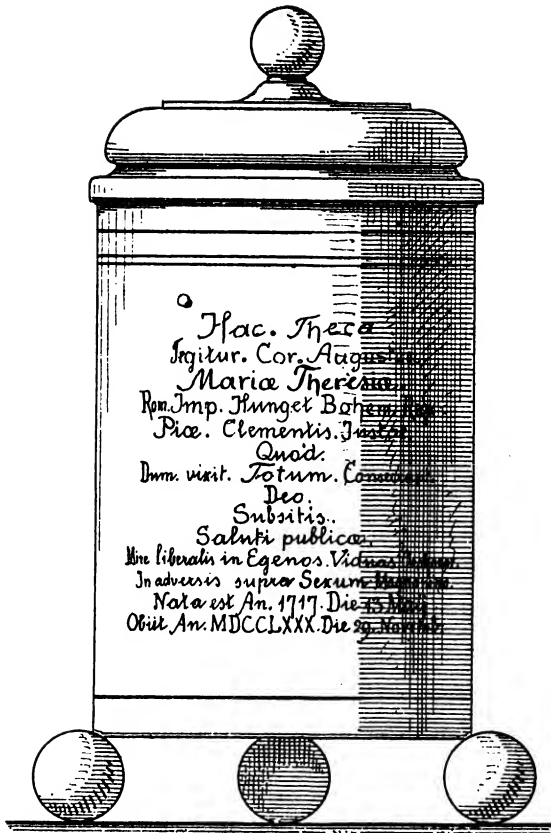 Hac. Theca
Tegitur. Cor. Augustæ.
Mariæ Theresiæ.
Rom. Imp. Hung et Bohem. Reg.
Piæ. Clementis. Justæ.
Quod.
Dum. vixit. Totum.
Deo.
Subsitis.
Saluti publicæ.
Mire liberalis in Egenos. Viduas
In adversis supra Sexum
Nata est An. 1717. Die 13 Maij
Obiit An. MDCCLXXX. Die 29. Novemb.